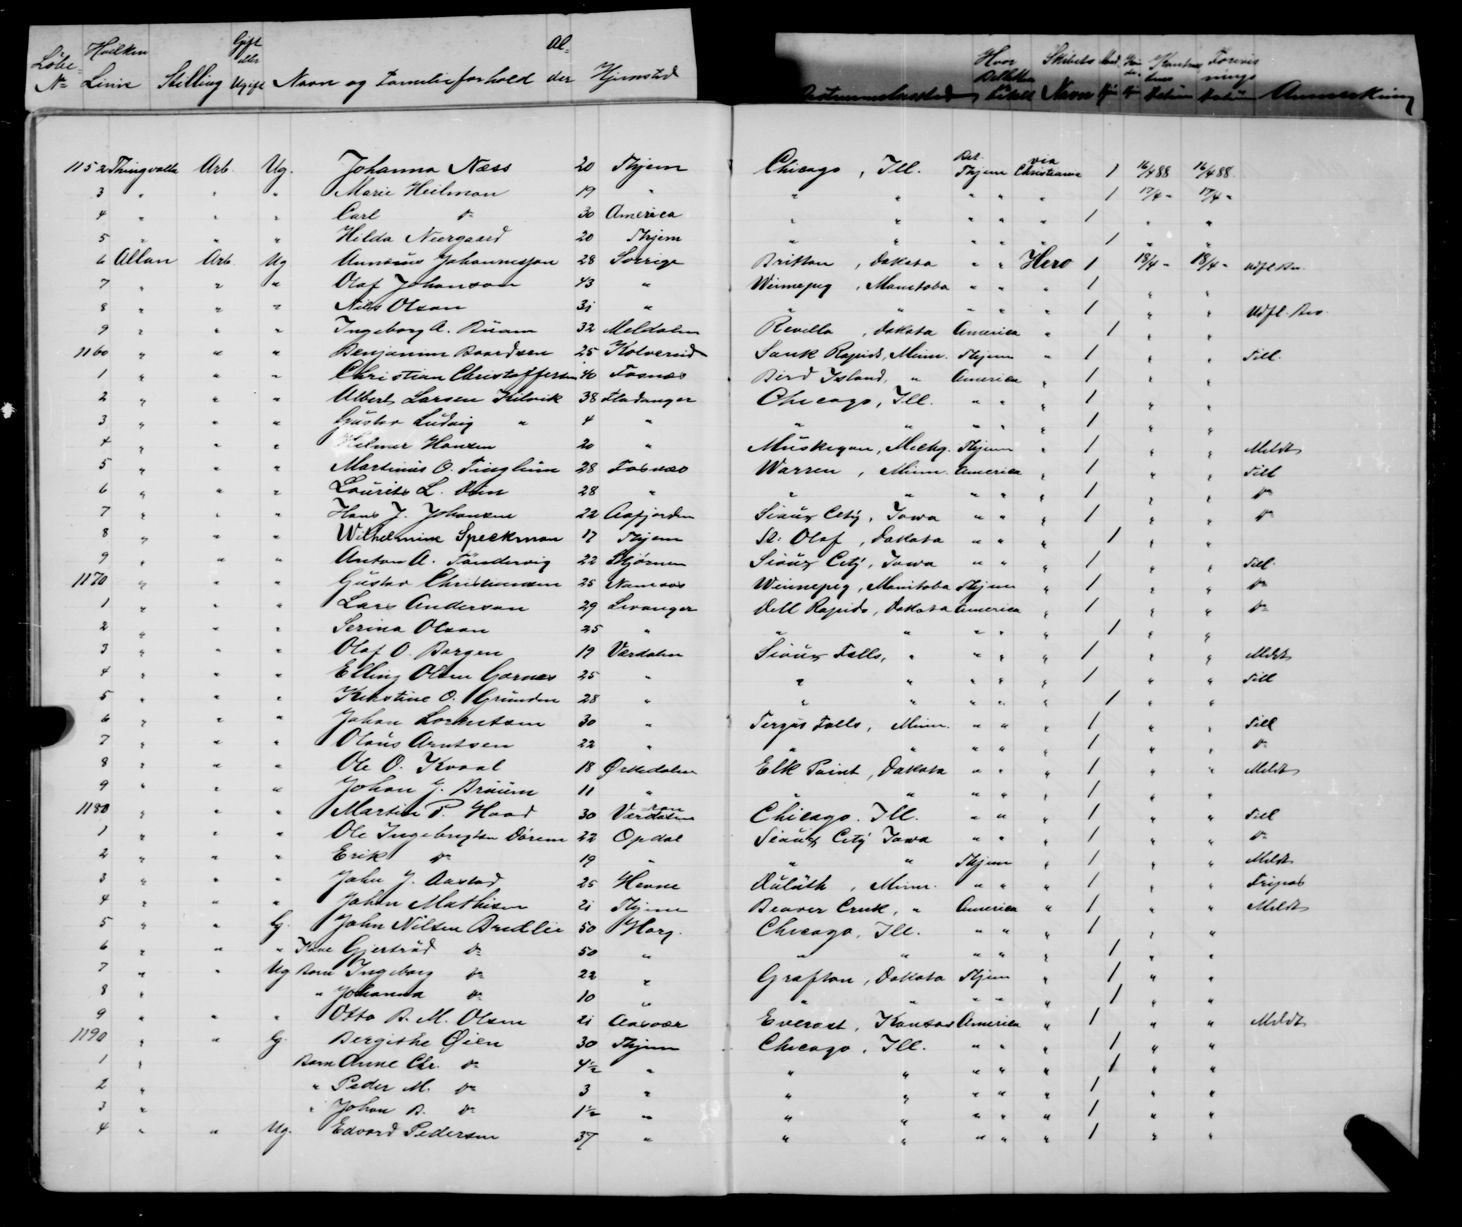 Løbe Nr Hvilken Linie Stilling Gift eller Ugift Navn og Familieforhold Alder Hjemsted Bestemmelsessted Hvor Billetten betalt Skibets Navn Anmerkning
1152 Thingvalla Arb. Ug. Johanna Næss 20 Thjem Chicago, Ill. Thjem via Christiania 1 16/4 88 16/4 88
3 " " " Marie Heilman 19 " " " " " " 1 17/4 " 17/4 "
4 " " " Carl do 30 America " " " " " 1 " "
5 " " " Hilda Neergaard 20 Thjem " " " " " 1 " "
6 Allan Arb. Ug Johannesson 28 Sverige Britton, Dakota " " Hero 1 18/4 " 18/4 "
7 " " " Olaf Johanson 43 " Winnepeg, Manitoba " " " 1 " "
8 " " " Nils Olson 31 " " " " " " 1 " " Udfl. Bev
9 " " " Ingeborg A. 32 Meldalen Revillo, Dakota America " 1 " "
1160 " " " Benjamin Baardsen 25 Kolvereid Sauk Rapids, Minn. Thjem " 1 " " Till.
1 " " " Christian Christoffersen 40 Fosnæs Bird Island, " America " 1 " "
2 " " " Albert Larsen Kilvik 38 Fladanger Chicago, Ill. " " " 1 " "
3 " " " Gustav Ludvig " 4 " " " " " " 1 " "
4 " " " Hilmar Hansen 20 " Muskegon, Michg. Thjem " 1 " " Meldt
5 " " " Martinus O. Tinglum 28 Fosnæs Warren, Minn. America " 1 " " Till
6 " " " Lourits L. Dun 28 " " " " " " 1 " " do
7 " " " Hans J. Johansen 22 Aafjorden Sioux City, Iowa " " " 1 " " do
8 " " " Wilhelmine Speckman 17 Thjem St: Olaf, Dakota " " " 1 " "
9 " " " Anton A. Tøndervig 22 Stjørnen Sioux City, Iowa " " " 1 " " Till.
1170 " " " Gustav Christiansen 25 Namsos Winnepeg, Manitoba Thjem " 1 " " do
1 " " " Lars Anderson 29 Levanger Dell Rapids, Dakota America " 1 " " do
2 " " " Serina Olson 25 " " " " " " 1 " "
3 " " " Olaf O. Borgen 19 Værdalen Sioux Falls, " " " " 1 " " Meldt
4 " " " Elling Olsen Garnes 25 " " " " " " 1 " " Till
5 " " " Kirstine O. Grunden 28 " " " " " " 1 " "
6 " " " Johan Lorentsen 30 " Fergus Falls, Minn. " " " 1 " " Till
7 " " " Olaus Arntsen 22 " " " " " " 1 " " do
8 " " " Ole O. Kvaal 18 Ørkedalen Elk Point, Dakota " " " 1 " " Meldt
9 " " " Johan J. Bruum 11 " " " " " " 1 " "
1180 " " " Martin P. Haad 30 Værran Chicago. Ill. " " " 1 " " Till
1 " " " Ole Ingebrigtsen Dørem 22 Opdal Sioux City Iowa " " " 1 " " do
2 " " " Erik do 19 " " " Thjem " 1 " " Meldt
3 " " " John J. Aastad 25 Hevne Duluth, Minn. " " " 1 " " Fripas
4 " " " Johan Mathisen 21 Thjem Beaver Creek, " America " 1 " " Meldt
5 " " G. John Nilsen Bredlie 50 Horg. Chicago, Ill. " " " 1 " "
6 " " " Kone Gjertrud do 50 " " " " " " 1 " "
7 " " Ug Barn Ingeborg do 22 " Grafton, Dakota Thjem " 1 " "
8 " " Johanna do 10 " " " " " " 1 " "
9 " " " Otto B. M. Olsen 21 Aasvær Everast, Kansas America " 1 " " Meldt
1190 " " G. Bergithe Øien 30 Thjem Chicago, Ill. " " " 1 " "
1 " Barn Anne Chr. do 4½ " " " " " " 1 " "
2 " " Peder M. do 3 " " " " " " 1 " "
3 " " Johan B. do 1½ " " " " " " 1 " "
4 " " Ug. Edvard Pedersen 37 " " " " " " 1 " "